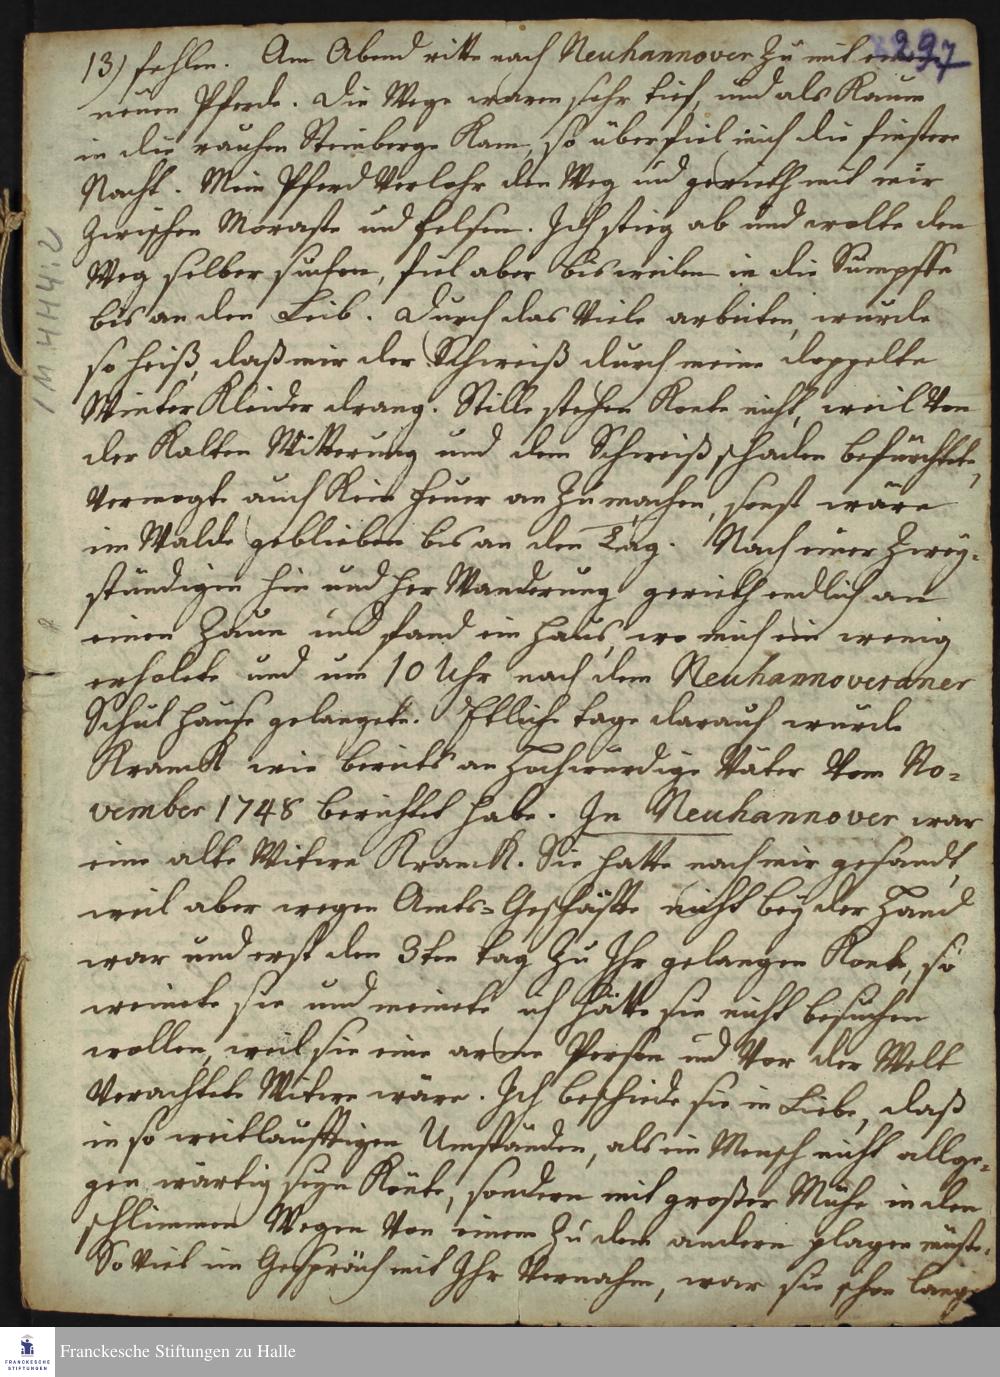 297
13) fehlen. Am Abend ritte nach Neuhannover zu mit einem
neuen Pferde. Die Wege waren sehr tief, und als kaum
in die rauhen Steinberge kam, so überfiel mich die finstere
Nacht. Mein Pferd verlohr den Weg und gerieth mit mir
zwischen Moraste und felsen. Ich stieg ab und wolte den
Weg selber suchen, fiel aber bisweilen in die Sümpffe
bis an den Leib. Durch das viele arbeiten, wurde
so heiß, daß mir der Schweiß durch meine doppelte
Winter Kleider drang. Stille stehen konte nicht, weil von
der kalten Witterung und dem Schweiß schaden befürchtete,
vermogte auch kein feuer an zu machen, sonst wäre
im Walde geblieben bis an den Tag. Nach einer zwey-
stündigen hin und her Wanderung gerieth endlich an
einen Zaun und fand ein Haus, wo mich ein wenig
erholete und um 10 Uhr nach dem Neuhannoveraner
Schul Hause gelangete. Etliche tage darauf wurde
kranck wie bereits an Hochwürdige Väter vom No-
vember 1748 berichtet habe. In Neuhannover war
eine alte Witwe kranck. Sie hatte nach mir gesandt,
weil aber wegen Amts-Geschäffte nicht bey der Hand
war und erst den 3ten tag zu Ihr gelangen konte, so
weinete sie und meinete ich hätte sie nicht besuchen
wollen, weil sie eine arme Person und vor der Welt
verachtete Witwe wäre. Ich beschiede sie in Liebe, daß
in so weitläufftigen Umständen, als ein Mensch nicht allge-
gen wärtig seyn könte, sondern mit großer Mühe in den
schlimmen Wegen von einem zu dem andern plagen müste.
So viel im Gespräch mit Ihr vernahm, war sie schon lange
1 M 4 H 4 : 2
FRANCKESCHE
STIFTUNGEN
Franckesche Stiftungen zu Halle